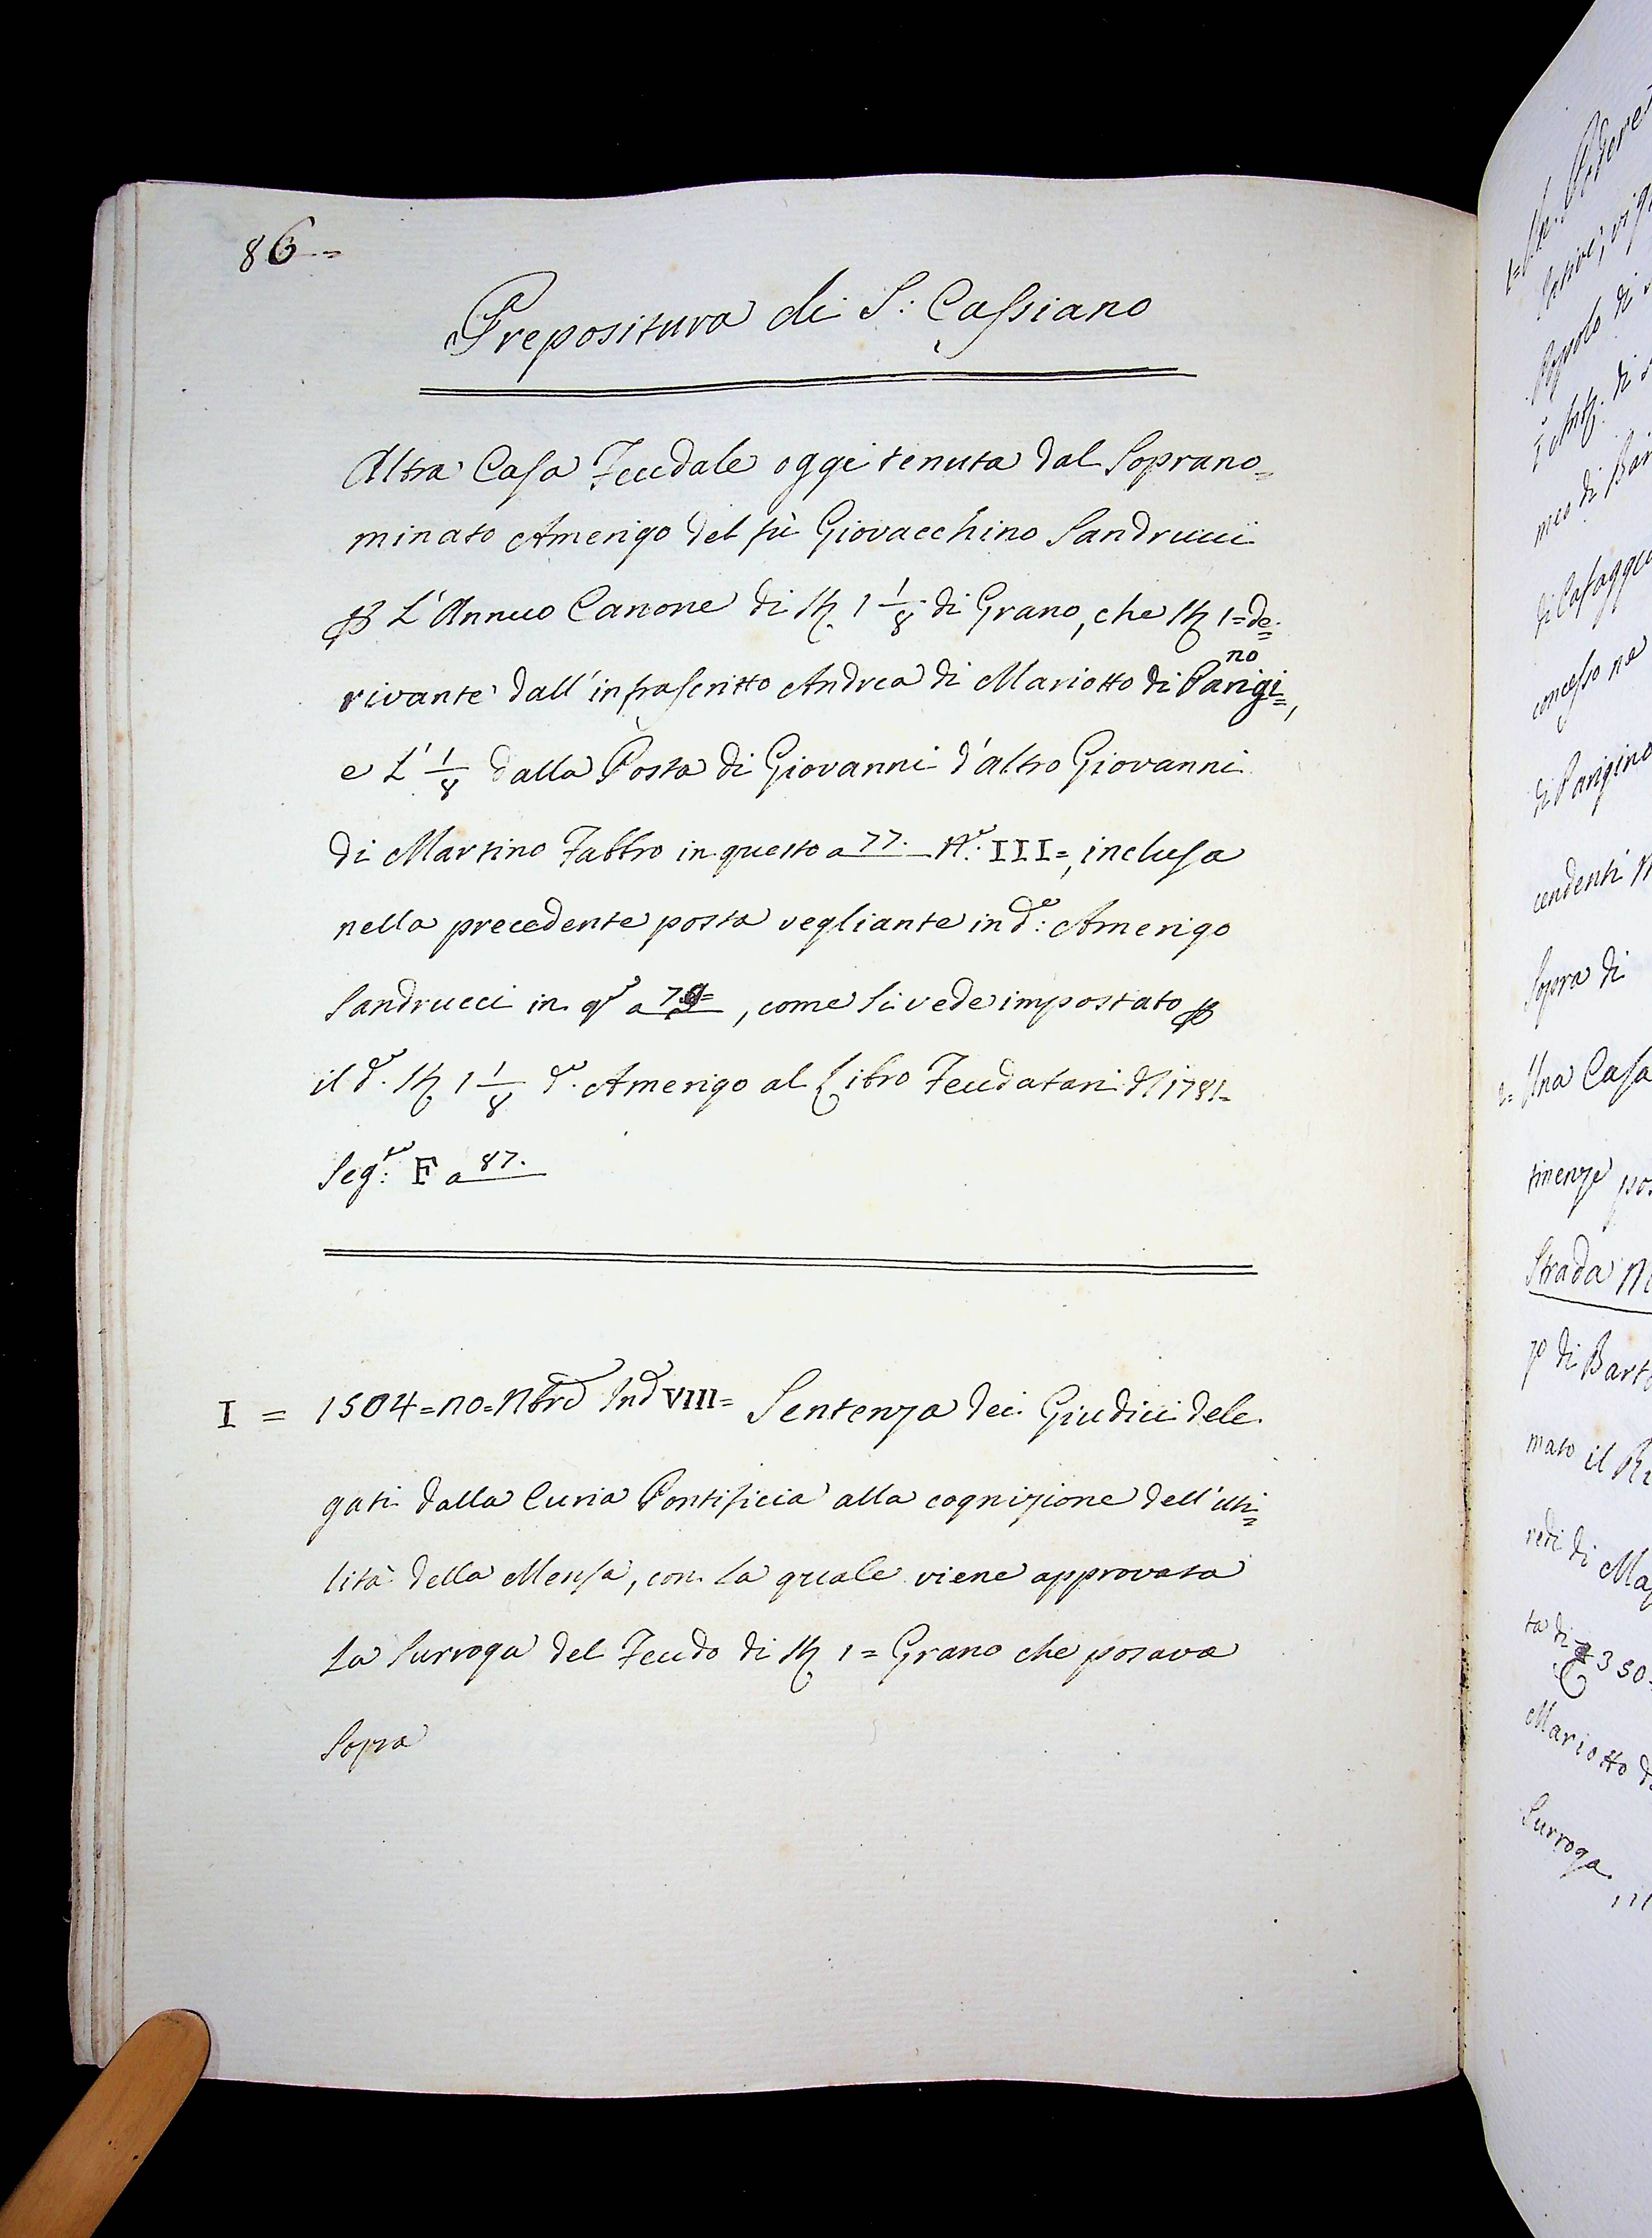 86=
Prepositura di S: Cassiano
Altra Casa Feudale oggi tenuta dal Soprano=
minato Amerigo del fù Giovacchino Sandrucci
P L'Annuo Canone di St. 1 1/8 di Grano, che St 1= de=
rivante dall'infrascritto Andrea di Mariotto di Parigi=no,
e L' 1/8 dalla Posta di Giovanni d'altro Giovanni
di Martino Fabbro in questo a 77. N.º III=, inclusa
nella precedente posta vegliante in d.º: Amerigo
Sandrucci in qº a 79=, come si vede impostato P
il dº. St 1 1/8 dº. Amerigo al Libro Feudatari dl 1781=
Segº: F a 87.
I = 1504=no=Nbre Ind VIII= Sentenza dei Giudici dele
gati dalla Curia Pontificia alla cognizione dell'uti=
lità della Mensa, con la quale viene approvata
La Surroga del Feudo di St 1= Grano che posava
Sopra
Popolo di
di Bar
di Casaggio
concesso ne
di Parigino
cendenti
Sopra di
2= Una Casa
tinenze
Strada
di Bart
mato il
redi di
ta di 350
Mariotto
Surroga